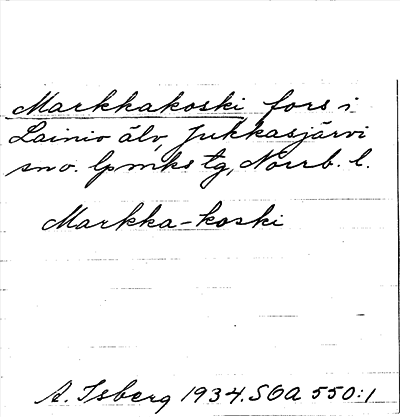 Markkakoski fors i
Lainio älv, Jukkasjärvi
sn o. lpmks tg, Norrb. l.
Markka-koski
A. Isberg 1934. SOA 550:1